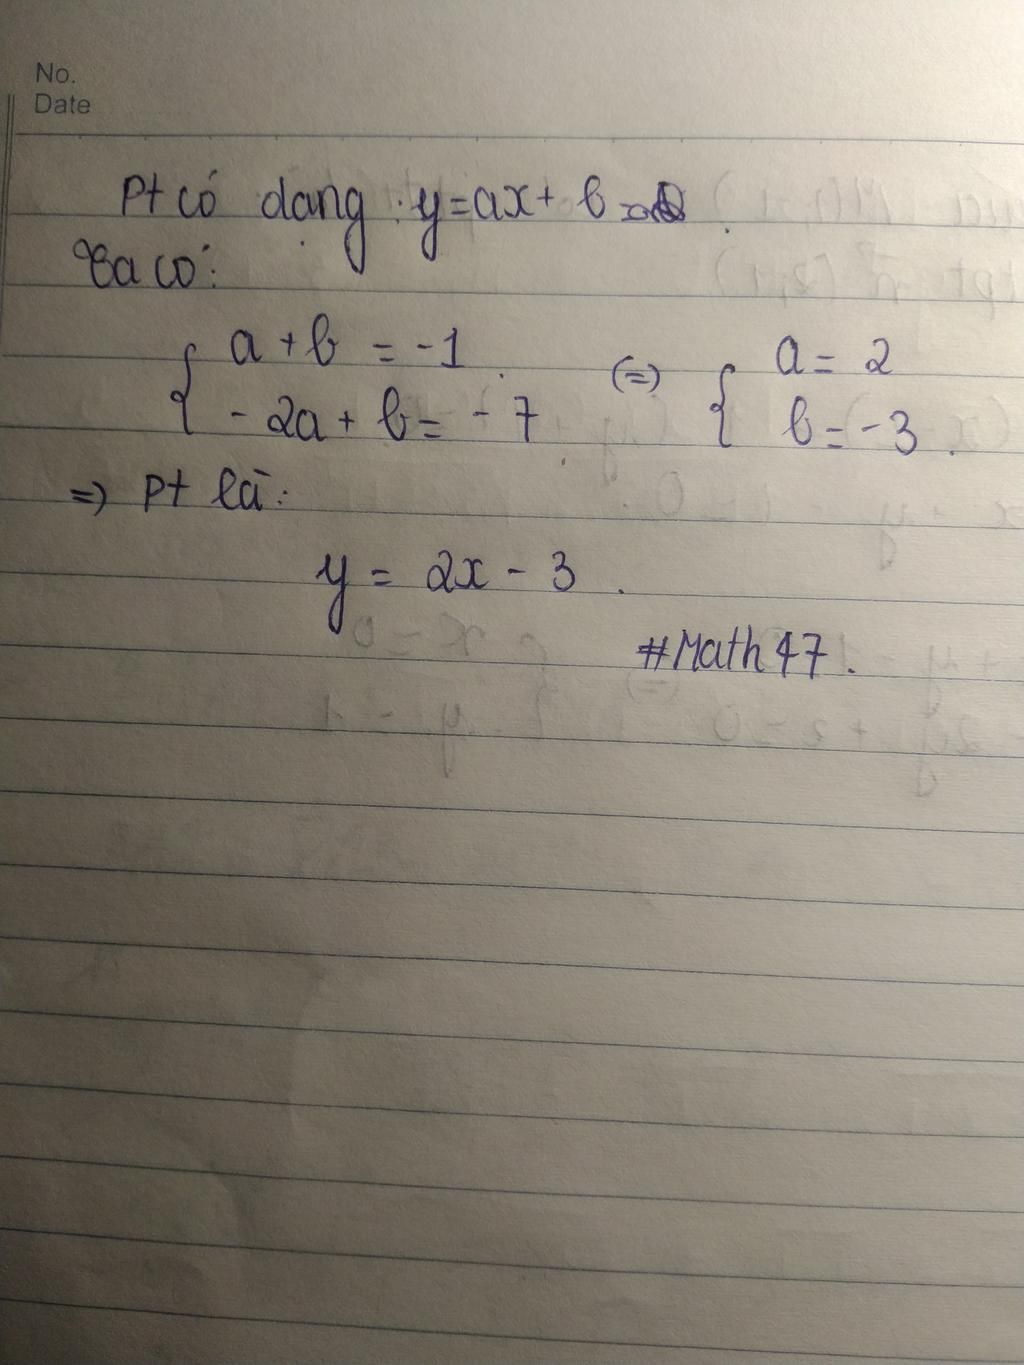 No.
Date
Pt có dạng : y = ax + b
Ta có:
{ a + b = -1 (=) { a = 2
{ - 2a + b = - 7 { b = -3 .
=) Pt là :
y = 2x - 3 .
#Math 47 .